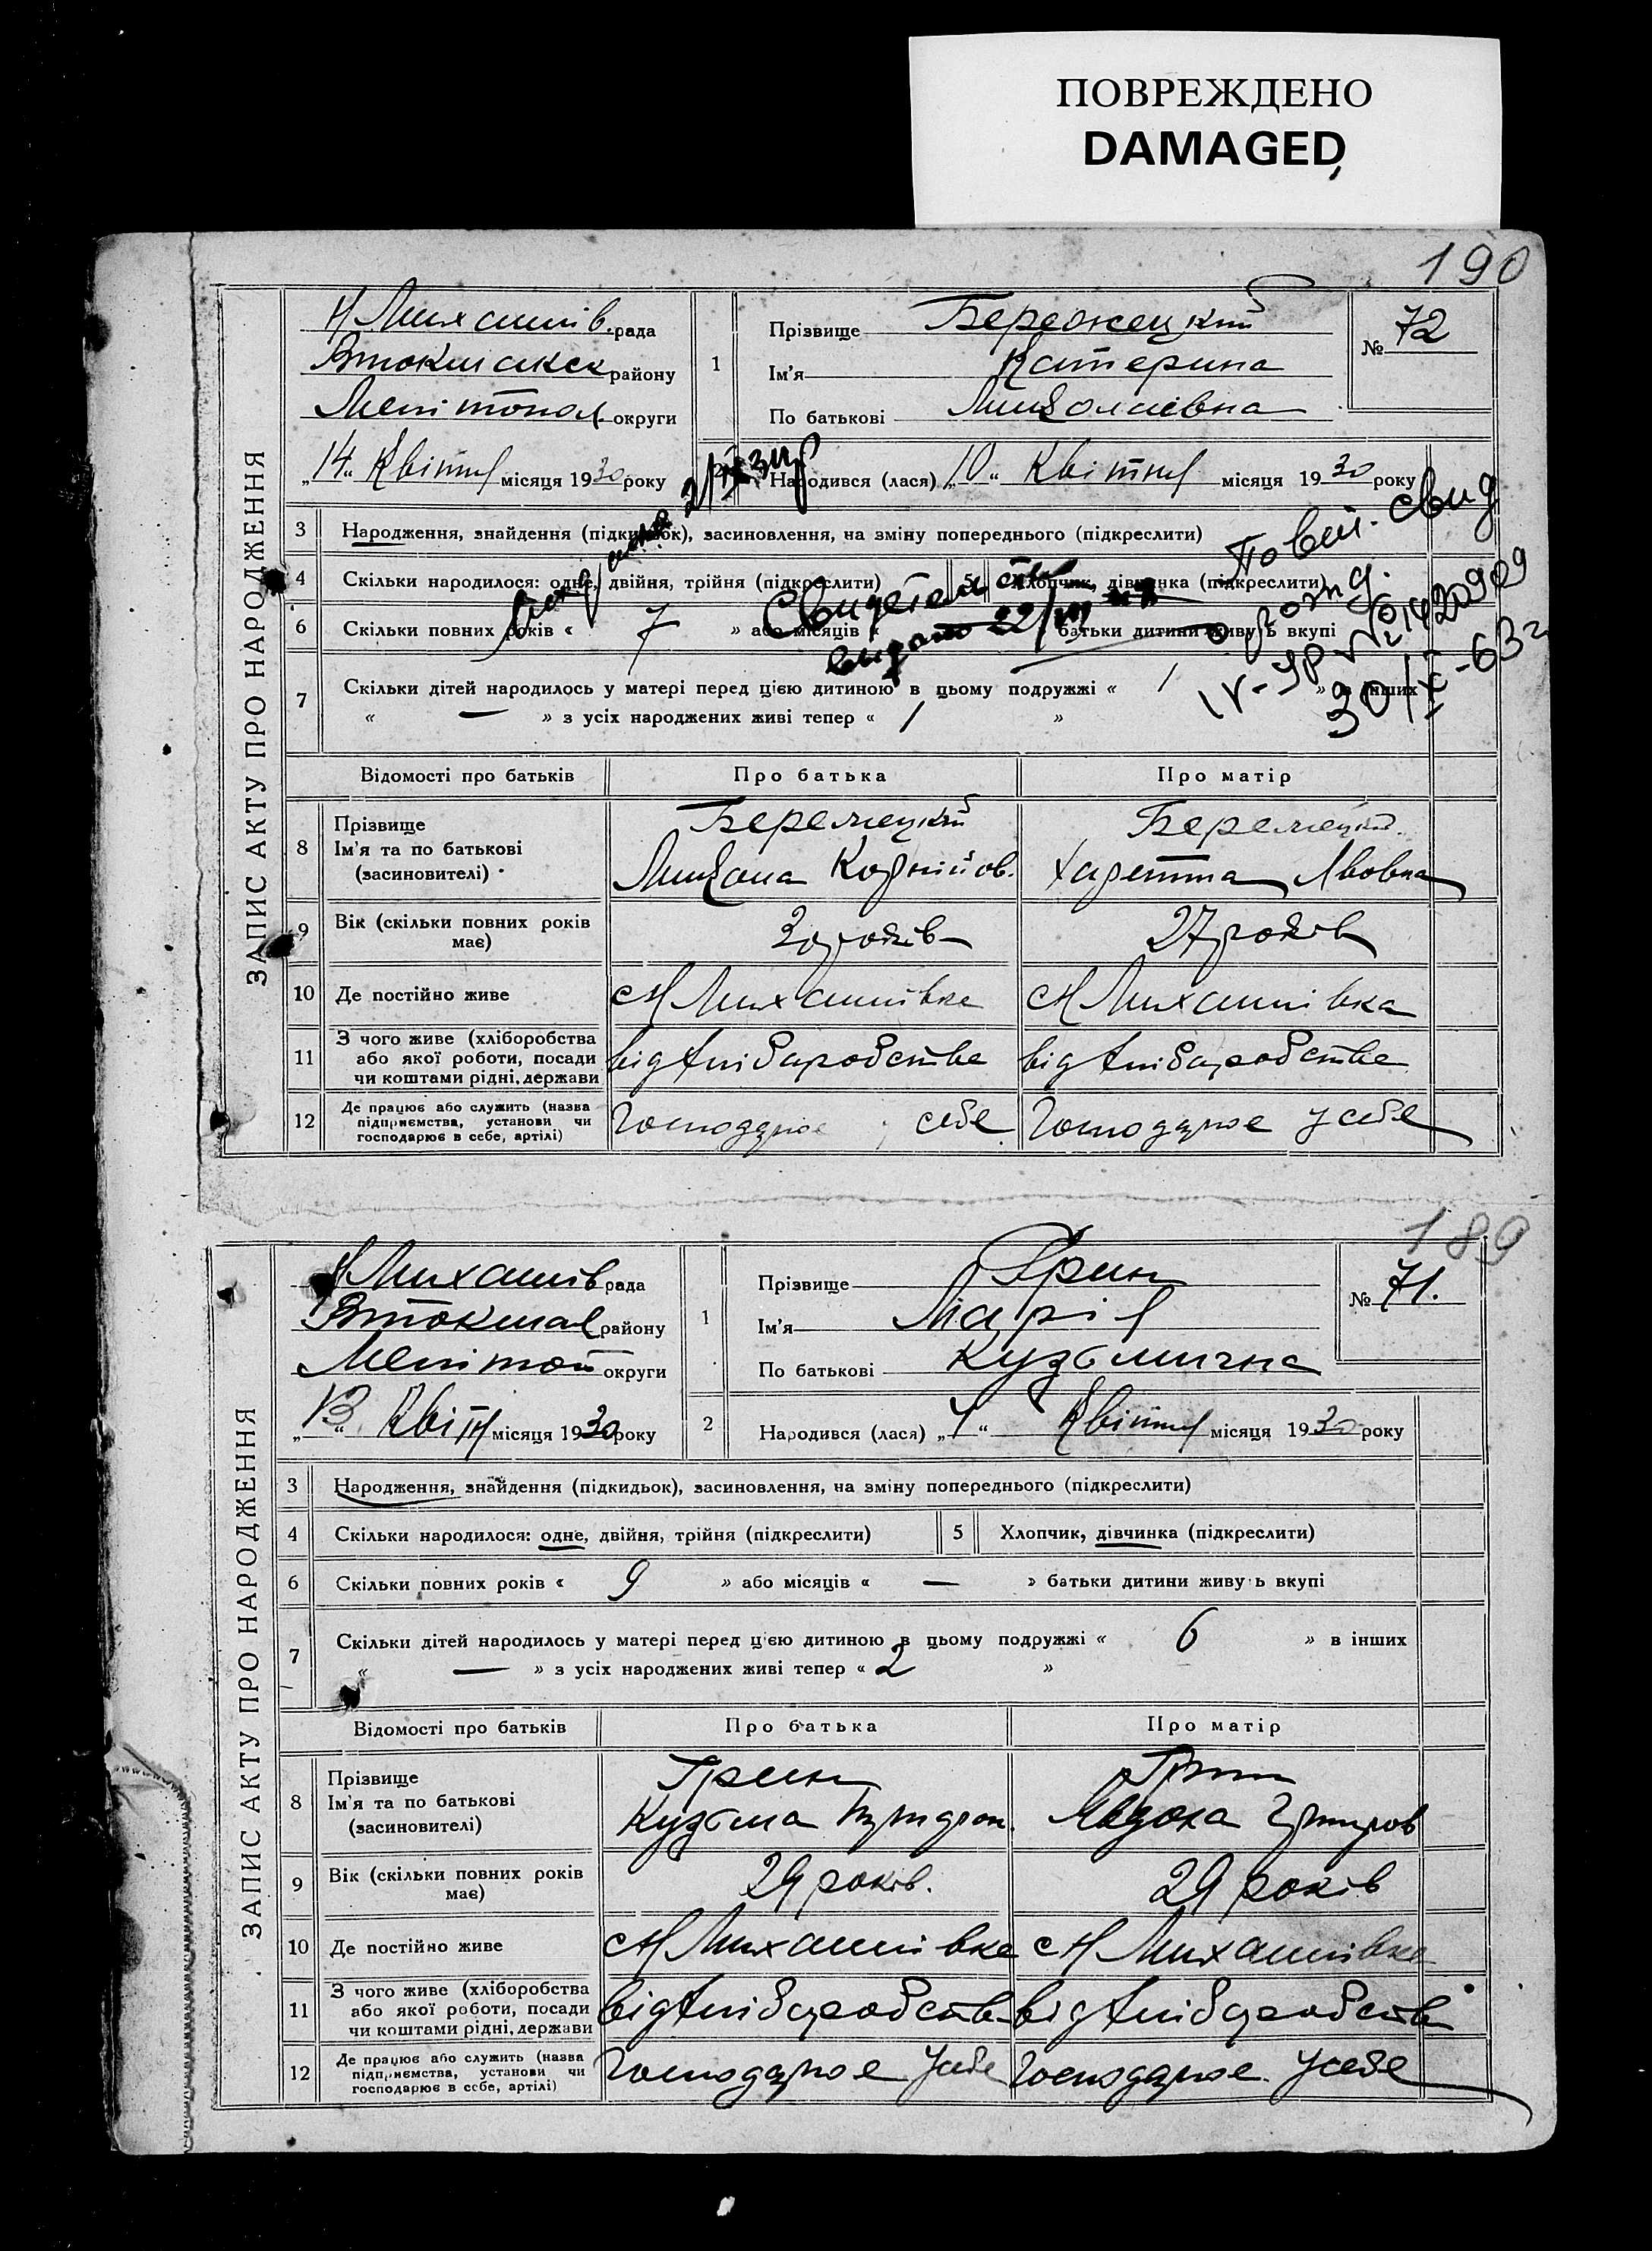 ПОВРЕЖДЕНО
DAMAGED
190
ЗАПИС АКТУ ПРО НАРОДЖЕННЯ
Н Михайлів. рада
Втокмакск району
Меліtопол. округи
„14“ Квітня місяця 1930 року
1
Прізвище Бережецкий
Ім'я Катерина
По батькові Миколаївна
№ 72
2 Народився (лася) „10“ Квітня місяця 1930 року
3 Народження, знайдення (підкидьок), засиновлення, на зміну попереднього (підкреслити)
4 Скільки народилося: одне, двійня, трійня (підкреслити) 5 Хлопчик, дівчинка (підкреслити)
6 Скільки повних років « 7 » або місяців « батьки дитини живуть вкупі
7 Скільки дітей народилось у матері перед цією дитиною в цьому подружжі « 1 » в інших
« — » з усіх народжених живі тепер « 1 »
Свидетельство
выдано 22/III
Повт. свид
о рожд.
IV-ЯР № 1420909
30/X-63г
Відомості про батьків Про батька Про матір
8 Прізвище
Ім'я та по батькові
(засиновителі)
Бережецкий
Микола Корнійов.
Бережецкий.
Харетина Львовна
9 Вік (скільки повних років має) 30 років 27 років
10 Де постійно живе с Н Михайлівка с Н Михайлівка
11 З чого живе (хліборобства
або якої роботи, посади
чи коштами рідні, держави
від хліборобства від хліборобства
12 Де працює або служить (назва
підприємства, установи чи
господарює в себе, артілі)
Господарює себе Господарює у себе
189
ЗАПИС АКТУ ПРО НАРОДЖЕННЯ
Н Михайлів рада
Втокмак району
Меліtоп округи
„13“ Квітн місяця 1930 року
1
Прізвище Грин
Ім'я Марія
По батькові Кузьмична
№ 71.
2 Народився (лася) „7“ Квітня місяця 1930 року
3 Народження, знайдення (підкидьок), засиновлення, на зміну попереднього (підкреслити)
4 Скільки народилося: одне, двійня, трійня (підкреслити) 5 Хлопчик, дівчинка (підкреслити)
6 Скільки повних років « 9 » або місяців « — » батьки дитини живуть вкупі
7 Скільки дітей народилось у матері перед цією дитиною в цьому подружжі « 6 » в інших
« — » з усіх народжених живі тепер « 2 »
Відомості про батьків Про батька Про матір
8 Прізвище
Ім'я та по батькові
(засиновителі)
Грин
Кузьма
Грин
Явдоха
9 Вік (скільки повних років має) 29 років. 29 років
10 Де постійно живе с Н Михайлівка с Н Михайлівка
11 З чого живе (хліборобства
або якої роботи, посади
чи коштами рідні, держави
від хліборобств від хліборобств
12 Де працює або служить (назва
підприємства, установи чи
господарює в себе, артілі)
Господарює у себе Господарює у себе